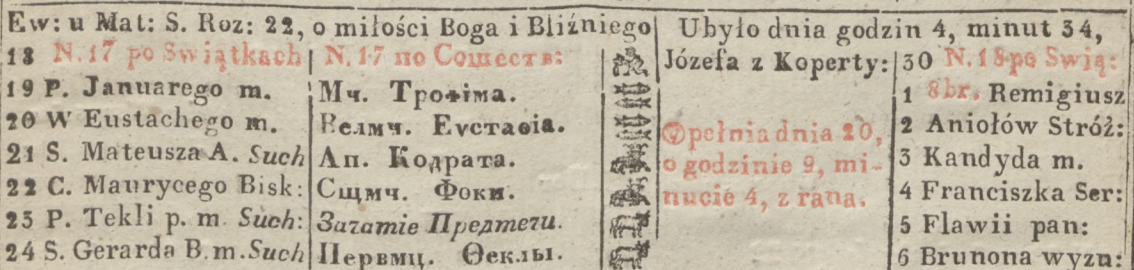 Ew: u Mat: S. Roz: 22, o miłości Boga i Bliźniego
18 N. 17 po Swiątkach
19 P. Januarego m.
20 W Eustachego m.
21 S. Mateusza A. Such
22 C. Maurycego Bisk:
23 P. Tekli p. m. Such:
24 S. Gerarda B. m. Such
N. 17 по Сошеств:
Мч. Трофіма.
Велмч. Еѵстаѳіа.
Ап. Кодрата.
Сщмч. Фоки.
Зачатіе Предтечи.
Первмц. Ѳеклы.
Ubyło dnia godzin 4, minut 34,
Józefa z Koperty:
pełnia dnia 20,
o godzinie 9, mi-
nucie 4, z rana.
30 N. 18 po Swią:
1 8br. Remigiusz
2 Aniołów Stróż:
3 Kandyda m.
4 Franciszka Ser:
5 Flawii pan:
6 Brunona wyzn: